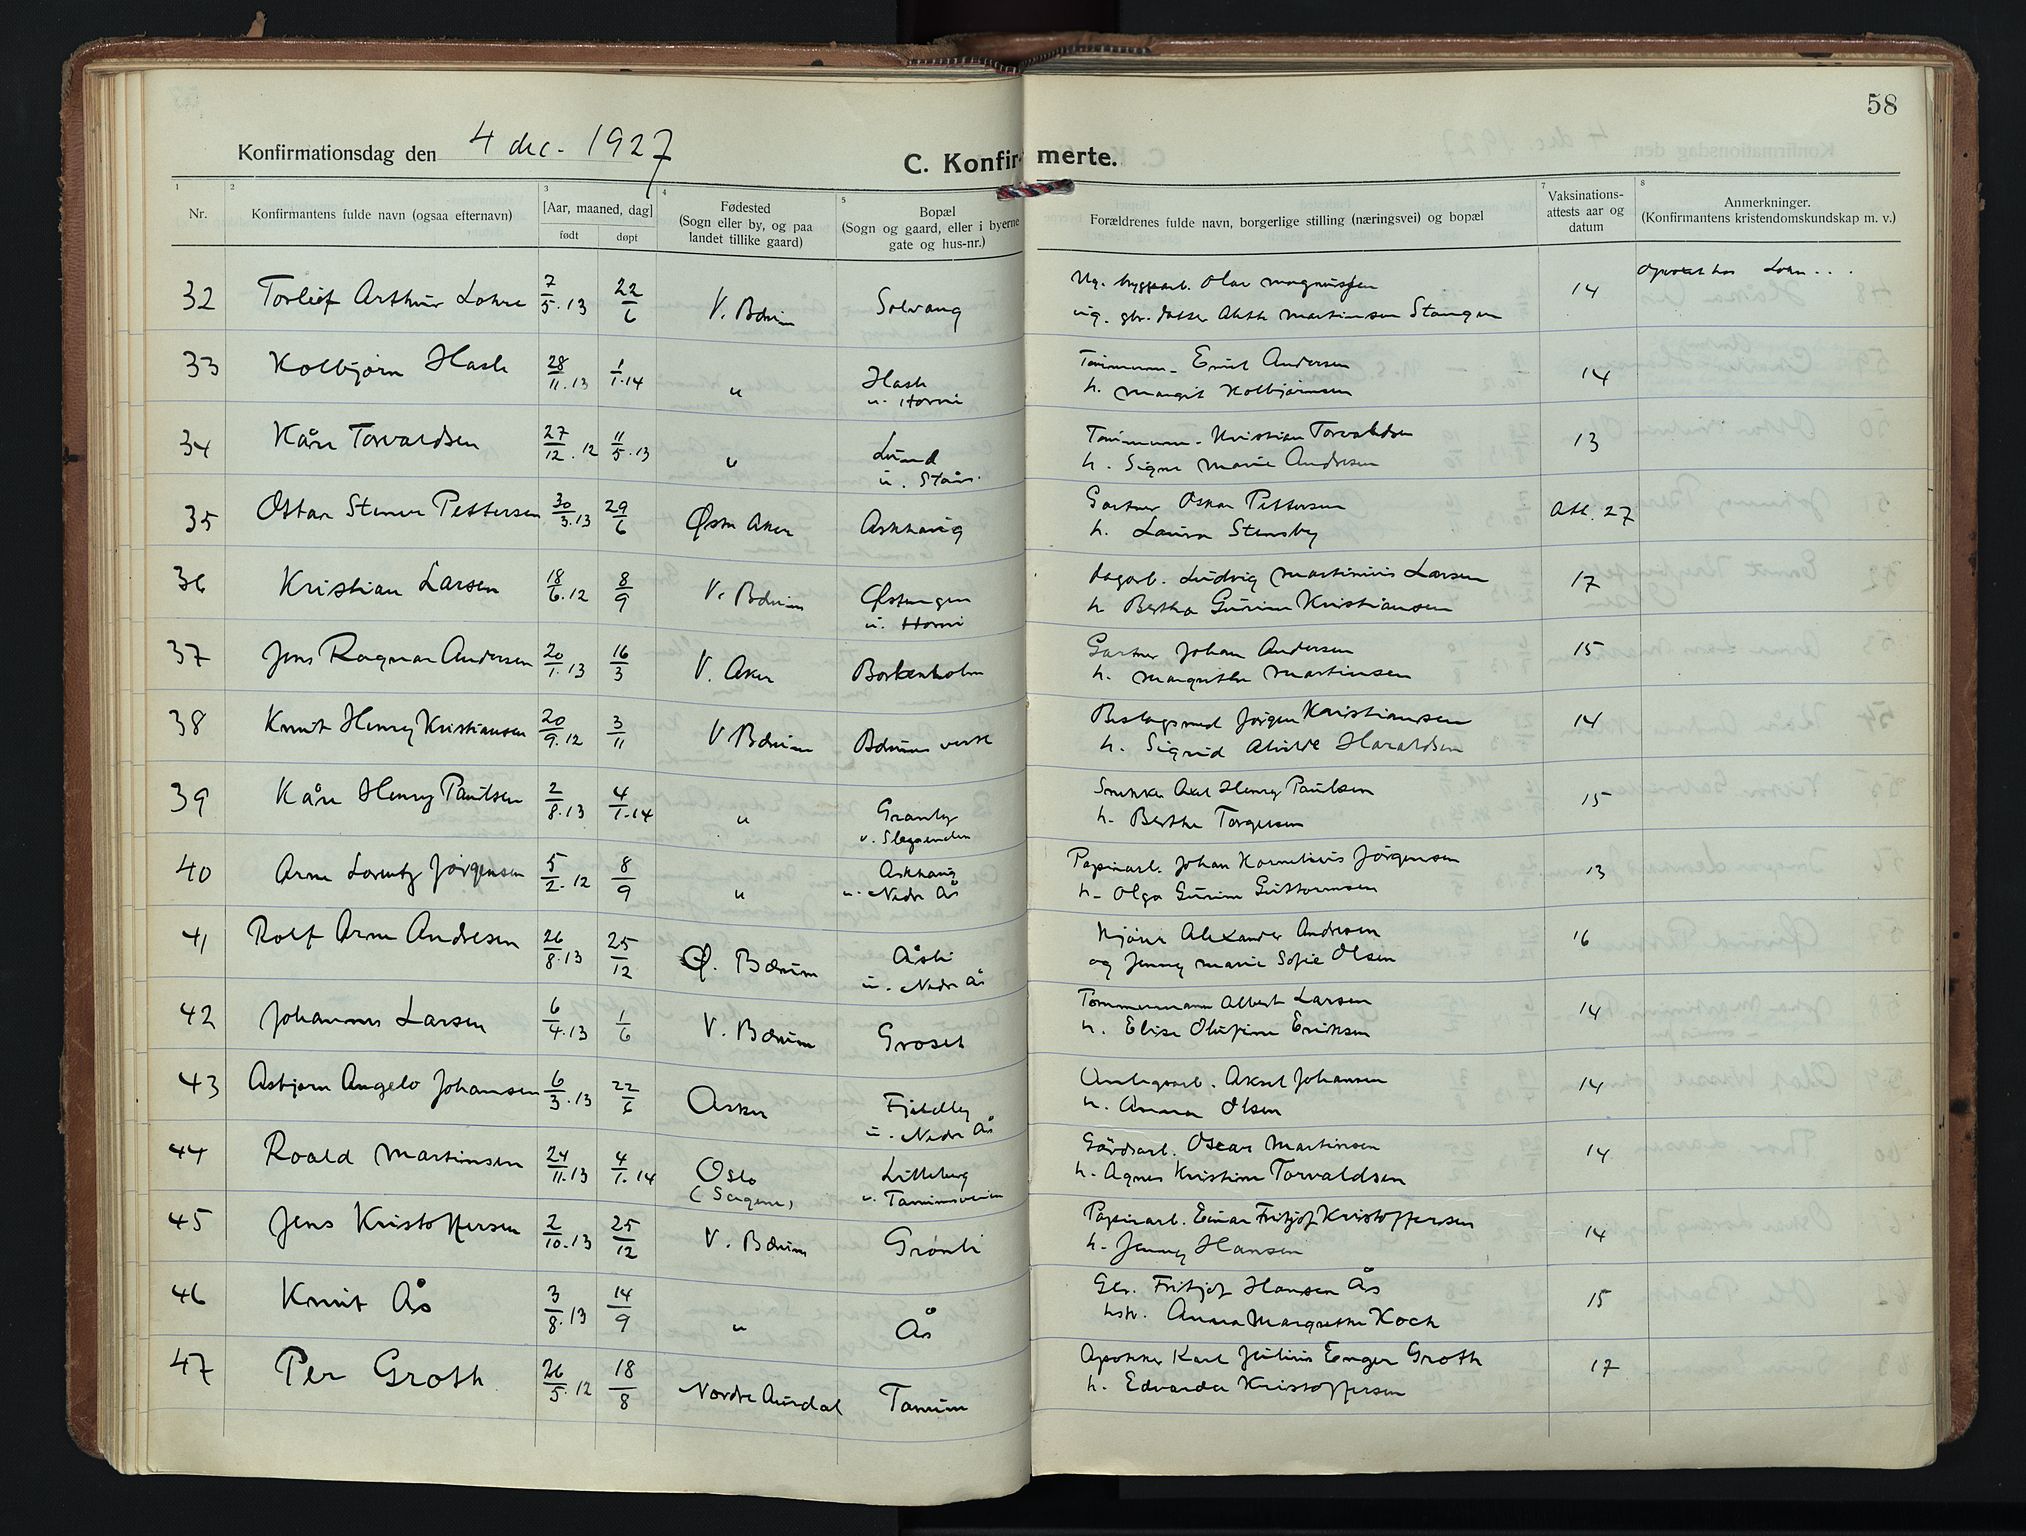 58
Konfirmationsdag den 4 dec. 1927
C. Konfirmerte.
1 2 3 4 5 7 8
Nr.
Konfirmantens fulde navn (ogsaa efternavn)
[Aar, maaned, dag]
født døpt
Fødested
(Sogn eller by, og paa
landet tillike gaard)
Bopæl
(Sogn og gaard, eller i byerne
gate og hus-nr.)
Forældrenes fulde navn, borgerlige stilling (næringsvei) og bopæl
Vaksinations-
attests aar og
datum
Anmerkninger.
(Konfirmantens kristendomskundskap m. v.)
32 Torleif Arthur Lohre 7/5.13 22/6 V. Bærum Solvang Ug. Olav Magnussen 14
ug. Martinsen Stangen
33 Kolbjørn Hasle 28/11.13 1/1.14 " Hasle Emil Andersen 14
u. Horni h. Margit Kolbjørnsen
34 Kåre Torvaldsen 27/12.12 11/5.13 " Lund Kristian Torvaldsen 13
h. Signe Marie Andresen
35 Ottar Stener Pettersen 30/3.13 29/6 Østre Aker Askhaug Gartner Oskar Pettersen Att. 27
h. Laura Stensby
36 Kristian Larsen 18/6.12 8/9 V. Bærum Østengen Ludvig Martinius Larsen 17
u. Horni h. Bertha Gurine Kristiansen
37 Jens Ragnar Andersen 20/1.13 16/3 V. Aker Borkenholm Gartner Johan Andersen 15
h. Margrethe Martinsen
38 Knut Henry Kristiansen 20/9.12 3/11 V Bærum Bærums verk Beslagsmed Jørgen Kristiansen 14
h. Sigrid Alvilde Haraldsen
39 Kåre Henry Paulsen 2/8.13 4/1.14 " Granly Snekker Axel Henry Paulsen 15
v. Slependen h. Berthe Torgersen
40 Arne Lorentz Jørgensen 5/2.12 8/9 " Askhaug Papirarb. Johan Kornelius Jørgensen 13
u. Nedre Ås h. Olga Gurine Guttormsen
41 Rolf Arne Andresen 26/8.13 25/12 Ø. Bærum Åsli Kjører Alexander Andresen 16
u. Nedre Ås og Jenny Marie Sofie Olsen
42 Johannes Larsen 6/4.13 1/6 V. Bærum Groset Tømmermann Albert Larsen 14
h. Elise Olufine Eriksen
43 Asbjørn Angelo Johansen 6/3.13 22/6 Asker Fjeldby Anlegsarb. Aksel Johansen 14
u. Nedre Ås h. Anna Olsen
44 Roald Martinsen 24/11.13 4/1.14 Oslo Lilleberg Gårdsarb. Oscar Martinsen 14
(Sagene) v. Tanumsveien h. Agnes Kristine Torvaldsen
45 Jens Kristoffersen 2/10.13 25/12 V. Bærum Grønli Papirarb. Einar Fritjof Kristoffersen 14
h. Jenny Hansen
46 Knut Ås 3/8.13 14/9 " Ås Gbr. Fritjof Hansen Ås 15
hstr. Anna Margrethe Koch
47 Per Groth 26/5.12 18/8 Nordre Aurdal Tanum Apotker Karl Julius Enger Groth 17
h. Edvarda Kristoffersen